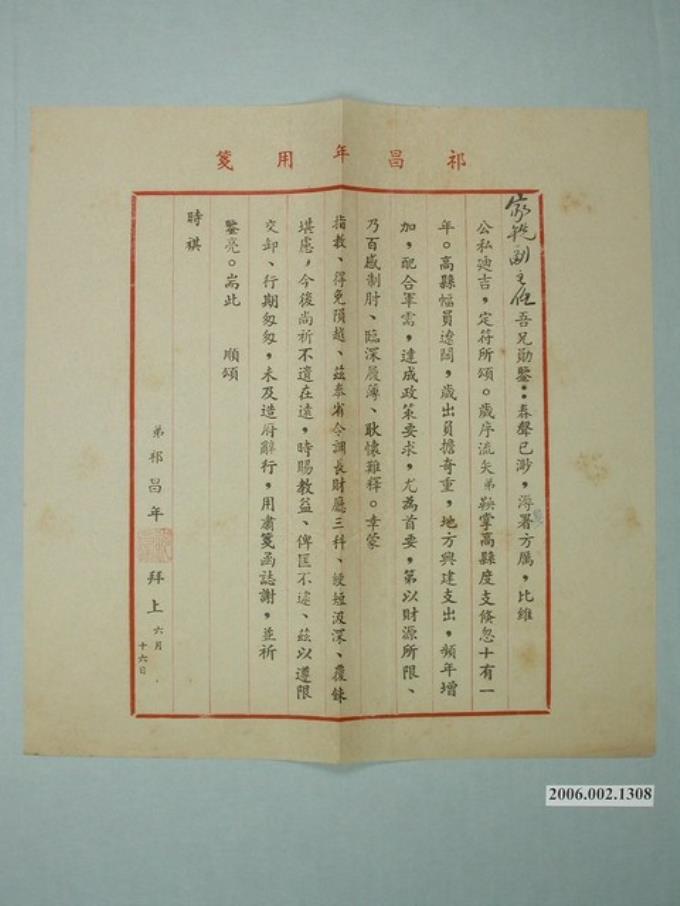 祁昌年用箋
家範副主任吾兄勛鑒：春聲已渺，溽署方厲，比維
公私迪吉，定符所頌。歲序流矢弟鞅掌高縣度支倏忽十有一
年。高縣幅員遼闊，歲出負擔奇重，地方興建支出，頻年增
加，配合軍需，達成政策要求，尤為首要，第以財源所限、
乃百感制肘、臨深履薄、耿懷難釋。幸蒙
指教、得免隕越、茲奉省令調長財廳三科、綆短汲深、覆餗
堪虞，今後尚祈不遺在遠，時賜教益、俾匡不逮、茲以遵限
交卸、行期匆匆，未及造府辭行，用肅箋函誌謝，並祈
鑒亮。耑此　順頌
時祺
弟祁昌年拜上六月十六日
2006.002.1308